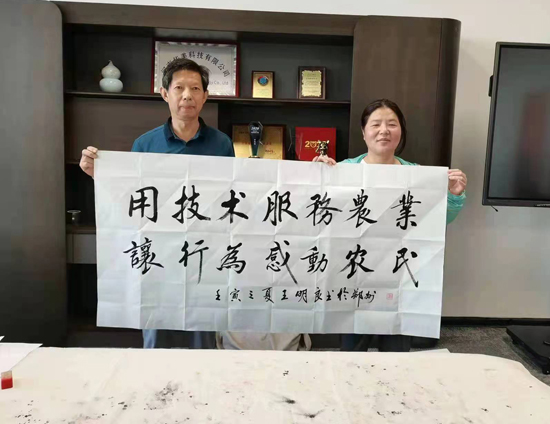 科技有限公司
用技术服務農業
讓行為感動农民
壬寅之夏王明良书於鄭州